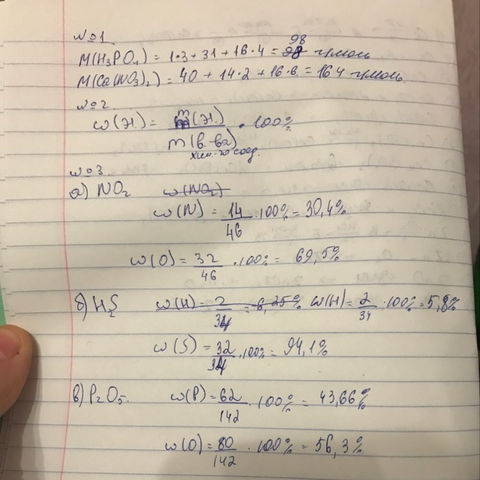 №1
M(H₃PO₄) = 1·3 + 31 + 16·4 = 98 г/моль
M(Ca(NO₃)₂) = 40 + 14·2 + 16·6 = 164 г/моль
№2
ω(Эл.) = m(Эл.) / m(в-ва) · 100%
хим-го соед.
№3
а) NO₂ ω(NO₂)
ω(N) = 14/46 · 100% = 30,4%
ω(O) = 32/46 · 100% = 69,5%
б) H₂S ω(H) = 2/34 = 6,25% ω(H) = 2/34 · 100% = 5,8%
ω(S) = 32/34 · 100% = 94,1%
в) P₂O₅. ω(P) = 62/142 · 100% = 43,66%
ω(O) = 80/142 · 100% = 56,3%